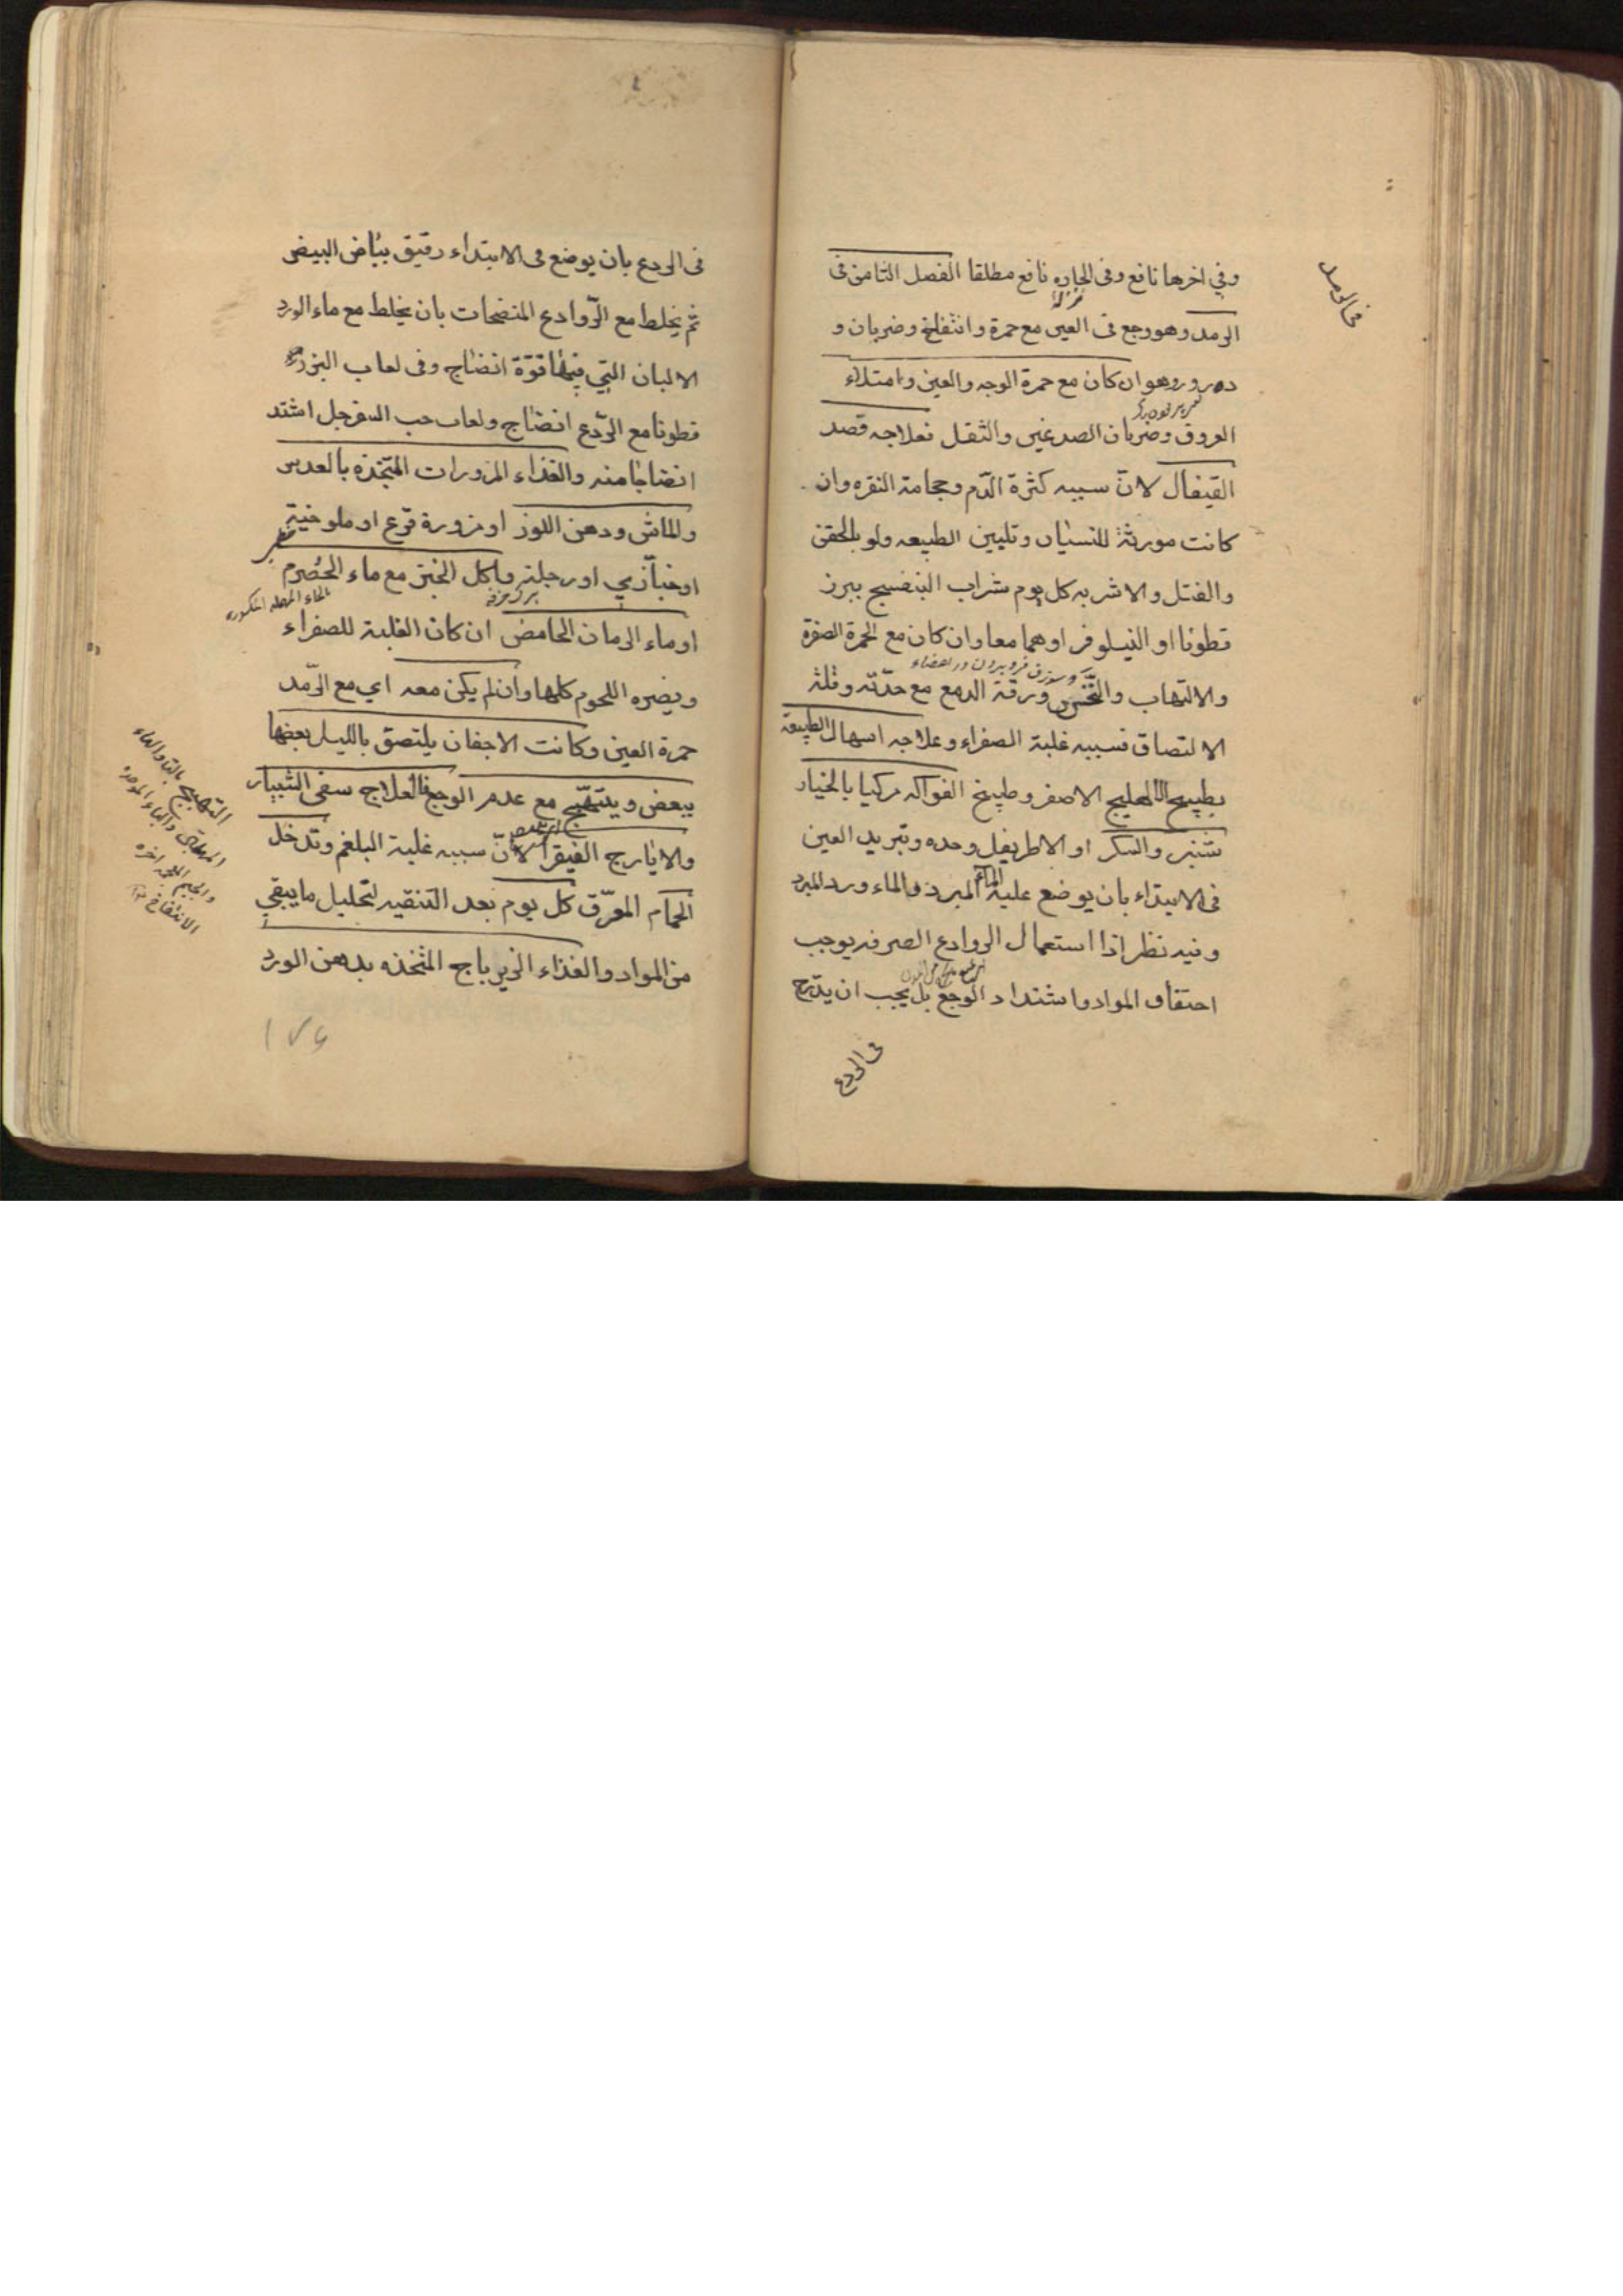 في الرمد
وفي اخرها نافع وفي الحاره نافع مطلقا الفصل الثامن في
الرمد وهو وجع في العين مع حمرة وانتفاخ وضربان و
درور وهو ان كان مع حمرة الوجه والعين وامتلاء
العروق وضربان الصدغين والثقل فعلاجه فصد
القيفال لانّ سببه كثرة الدّم وحجامة النقره وان
كانت مورثة للنسيان وتليين الطبيعه ولو بالحقن
والفتل والاشربه كل يوم شراب البنفسج ببزر
قطونا او النيلوفر او هما معا وان كان مع الحمرة الصفرة
والالتهاب والنخس ورقة الدمع مع حدّته وقلة
الالتصاق فسببه غلبة الصفراء وعلاجه اسهال الطبيعة
بطبيخ الاهليلج الاصفر وطبيخ الفواكه مركبا بالخيار
شنبر والسكر او الاطريفل وحده وتبريد العين
في الابتداء بان يوضع عليه الماء المبرد والماء ورد المبرد
وفيه نظر اذا استعمال الروادع الصرفه يوجب
احتقان المواد واشتداد الوجع بل يجب ان يدّرج
في الردع
في الردع بان يوضع في الابتداء رقيق بياض البيض
ثم يخلط مع الرّوادع المنضجات بان يخلط مع ماء الورد
الالبان التي فيها قوّة انضاج وفي لعاب البزر
قطونا مع الرّدع انضاج ولعاب حب السفرجل اشتد
انضاجا منه والغذاء المزورات المتّخذه بالعدس
والماش ودهن اللوز او مزورة قرع او ملوخية
او خبازي او رجلة وياكل الخبز مع ماء الحصرم
بالحاء المهمله المكسوره
او ماء الرمان الحامض ان كان الغلبة للصفراء
ويضره اللحوم كلها وان لم يكن معه اي مع الرّمد
حمرة العين وكانت الاجفان يلتصق بالليل بعضها
ببعض ويتهيّج مع عدم الوجع فالعلاج سقي الشبيار
والايارج الفيقرا لانّ سببه غلبة البلغم وتدخل
الحمام المعرّق كل يوم بعد التنقيه لتحليل ما يبقي
من المواد والغذاء الزيرباج المتخذه بدهن الورد
التهيج بالتاء والهاء
والباء الموحده
والجيم اخره
الانتفاخ